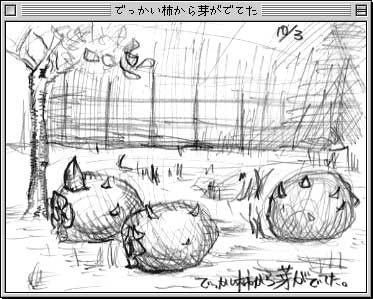 でっかい柿から芽がでてた
10/3
でっかい柿から芽がでてた。